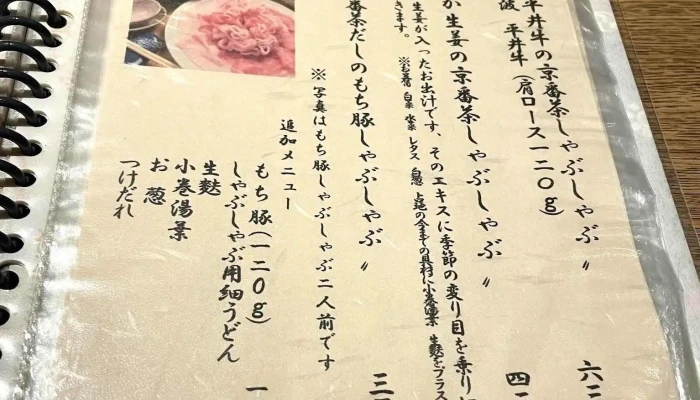 平井牛の京番茶しゃぶしゃぶ〃 六二
波 平井牛（肩ロース一二〇g）
か生姜の京番茶しゃぶしゃぶ〃 四二
生姜が入ったお出汁です、そのエキスに季節の変り目を乗り
きます。
※お豆腐 白菜 水菜 レタス 白葱 の今までの具材に小巻湯葉 生麩をプラス
番茶だしのもち豚しゃぶしゃぶ〃 三
※写真はもち豚しゃぶしゃぶ二人前です
追加メニュー
もち豚（一二〇g） 一
しゃぶしゃぶ用細うどん
生麩
小巻湯葉
お葱
つけだれ